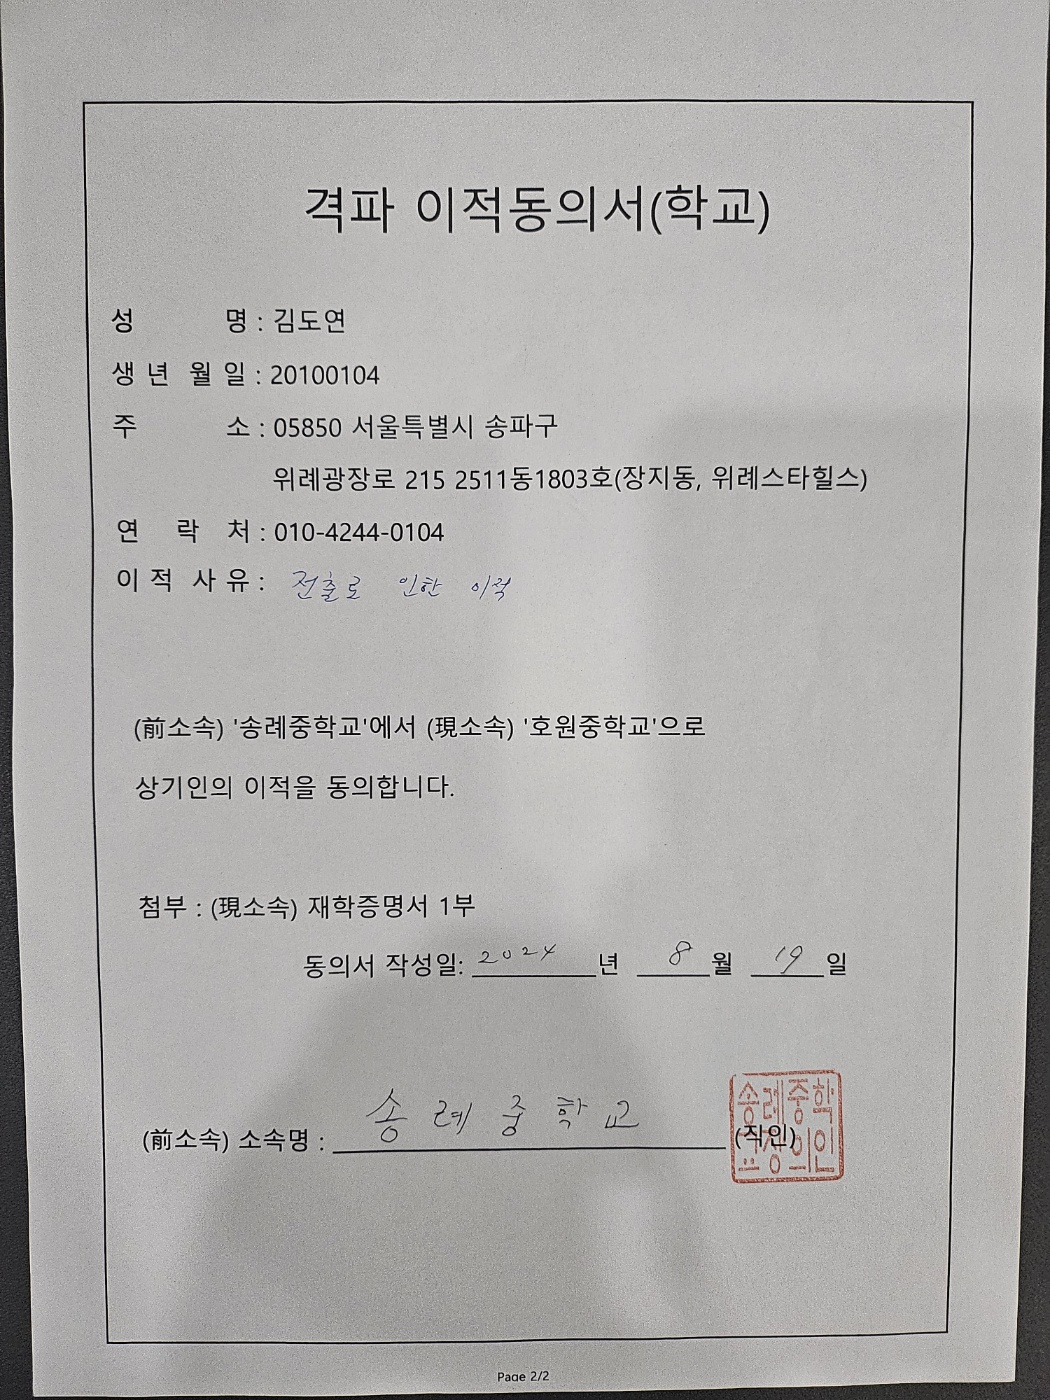 격파 이적동의서(학교)
성 명 : 김도연
생 년 월 일 : 20100104
주 소 : 05850 서울특별시 송파구
위례광장로 215 2511동1803호(장지동, 위례스타힐스)
연 락 처 : 010-4244-0104
이 적 사 유 : 전출로 인한 이적
(前소속) '송례중학교'에서 (現소속) '호원중학교'으로
상기인의 이적을 동의합니다.
첨부 : (現소속) 재학증명서 1부
동의서 작성일: 2024 년 8 월 19 일
(前소속) 소속명 : 송례중학교 (직인)
송례중학
교장의인
Page 2/2